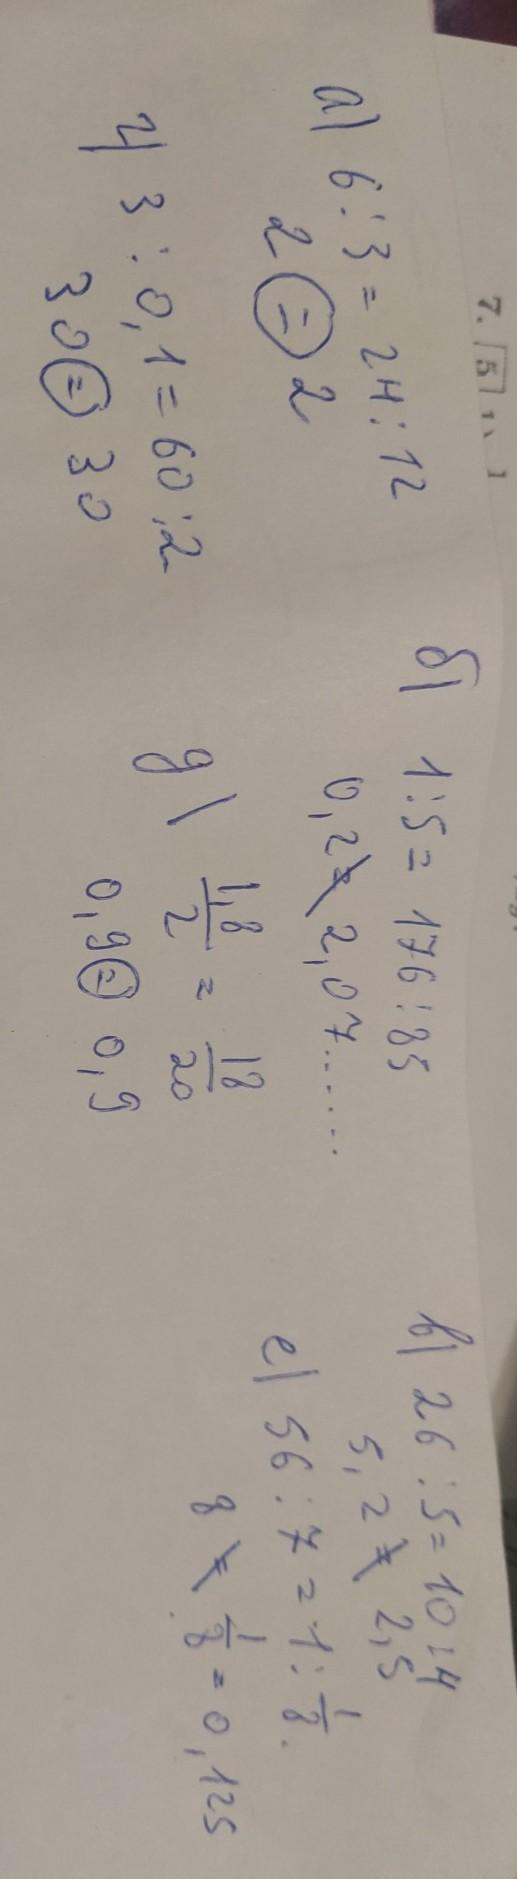 7. 5
а) 6:3 = 24:12
2 = 2
б) 1:5 = 176:85
0,2 ≠ 2,07......
в) 26:5 = 10:4
5,2 ≠ 2,5
г) 3:0,1 = 60:2
30 = 30
д) 1,8/2 = 18/20
0,9 = 0,9
е) 56:7 = 1:1/8.
8 ≠ 1/8 = 0,125